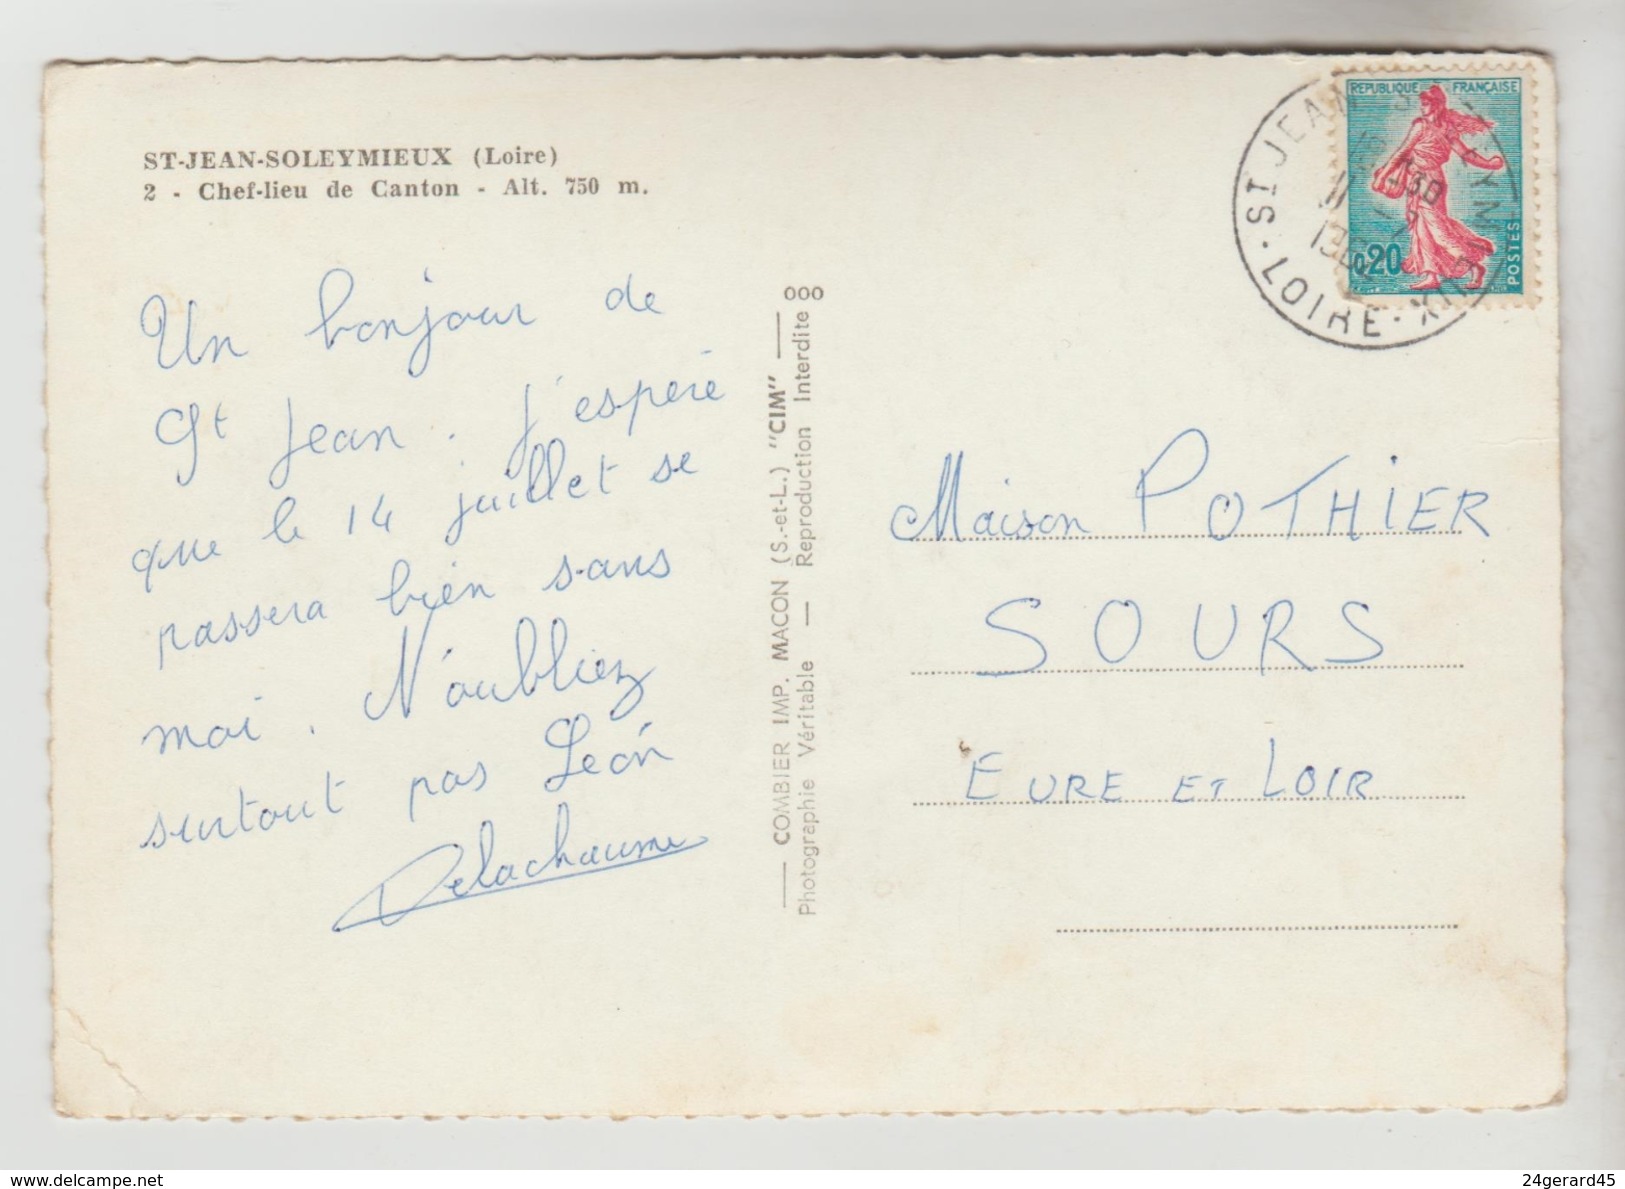 ST-JEAN-SOLEYMIEUX (Loire)
2 - Chef-lieu de Canton - Alt. 750 m.
Un bonjour de
St Jean. J'espère
que le 14 juillet se
passera bien sans
moi. N'oubliez
surtout pas Léon
Delachaume
COMBIER IMP. MACON (S.-et-L.) "CIM"
Photographie Véritable — Reproduction Interdite
000
REPUBLIQUE FRANÇAISE
0,20
POSTES
ST JEAN
LOIRE
Maison POTHIER
SOURS
EURE ET LOIR
www.delcampe.net
24gerard45